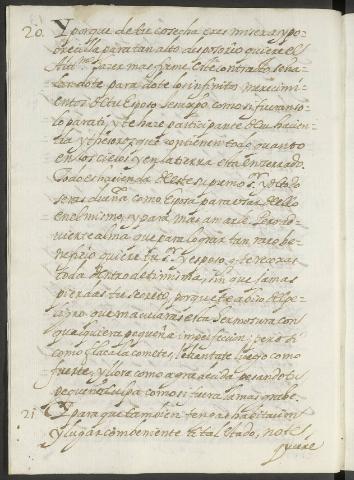 20. Y porque de tu cosecha eres misera, y po-
brecilla para tan alto desposorio quiere el
Altmo. hazer mas firme este contrato, seña-
landote para dote los infinitos mereçimi-
entos de tu esposo Jesuxpo. como si fueran so-
lo para ti, y te haze participante de su hacien-
da, y thesoros, que contienen todo quanto
en los cielos, y en la tierra esta encerrado.
Todo es hacienda deste supremo Sr. y de todo
seras dueña como esposa para usar dello
en el mismo, y para mas amarle. Pero ad-
vierte alma que para lograr tan raro be-
neficio quiere tu Sr. y esposo, que te recojas
toda dentro de ti misma, sin que jamas
pierdas tu secreto, porque te aviso del peli-
gro, que macularas esta hermosura con
qualquiera pequeña imperfeccion; pero si
como flaca la cometes, lebantate luego como
fuerte, y llora como agradecida pesando tu
pequeña culpa como si fuera la mas grabe.
21. Y para que tambien tengas habitacion
y lugar combeniente de tal estado, no te
quiere